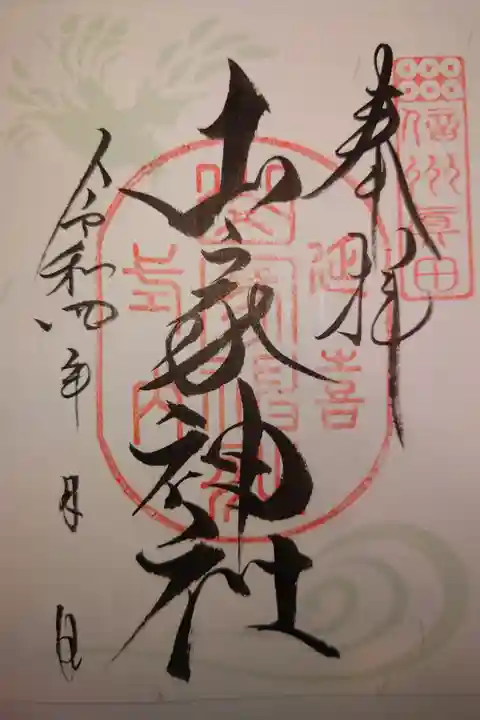 信州真田
奉拝
延喜
山家神社
式内
令和四年 月 日